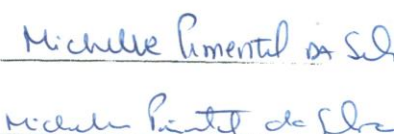 Michelle Pimentel DA Sil
Michelle Pimentel da Silva